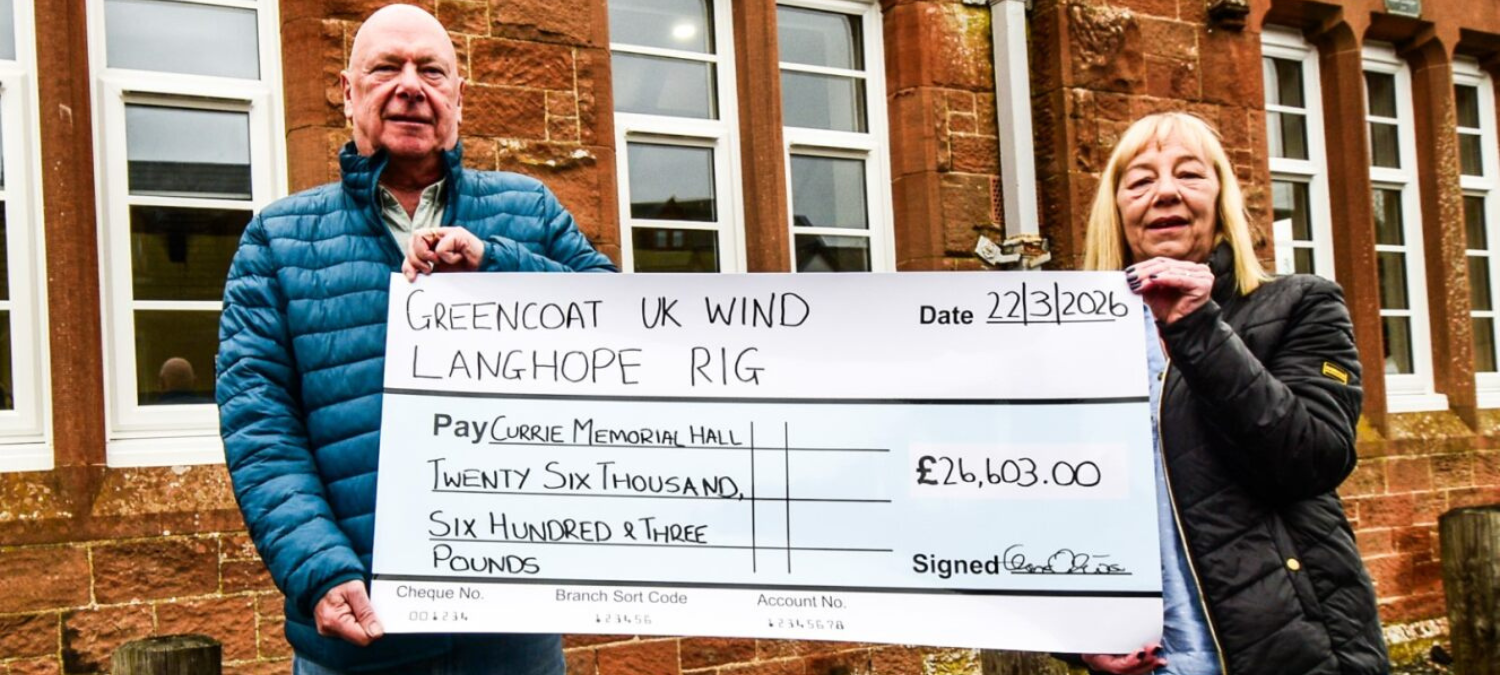 GREENCOAT UK WIND
LANGHOPE RIG
Date 22/3/2026
Pay CURRIE MEMORIAL HALL
TWENTY SIX THOUSAND,
SIX HUNDRED & THREE
POUNDS
£26,603.00
Signed
Cheque No. Branch Sort Code Account No.
001234 123456 12345678